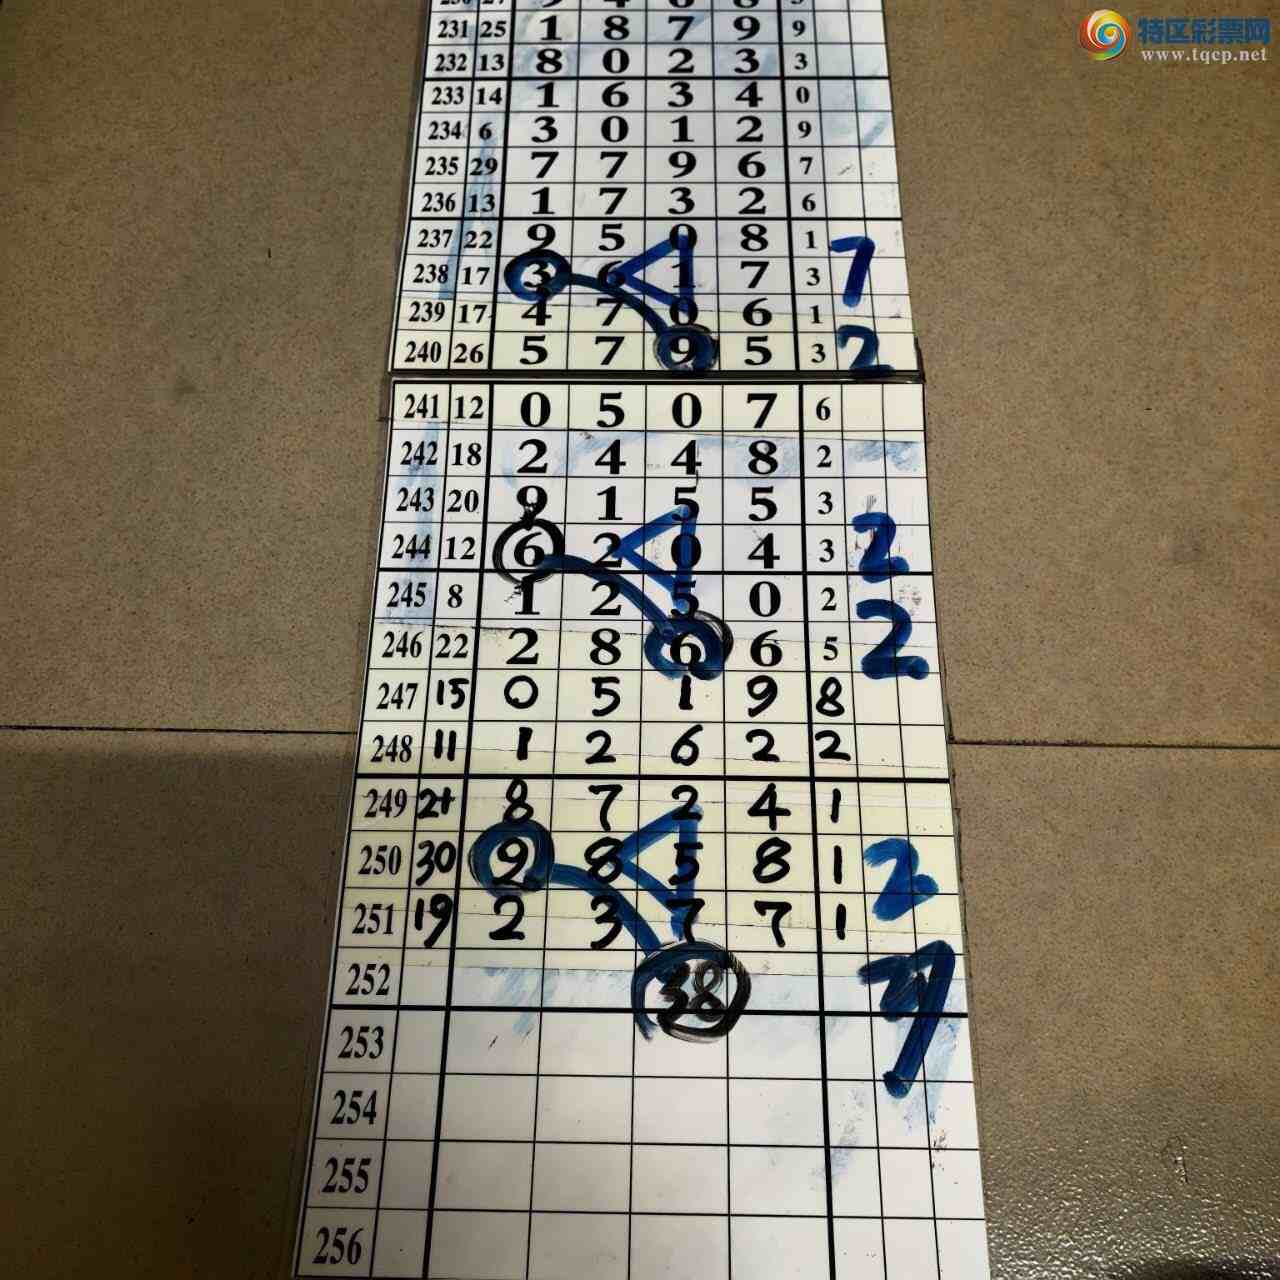 特区彩票网
www.tqcp.net
231 25 1 8 7 9 9
232 13 8 0 2 3 3
233 14 1 6 3 4 0
234 6 3 0 1 2 9
235 29 7 7 9 6 7
236 13 1 7 3 2 6
237 22 9 5 0 8 1
238 17 3 6 1 7 3 7
239 17 4 7 0 6 1
240 26 5 7 9 5 3 2
241 12 0 5 0 7 6
242 18 2 4 4 8 2
243 20 9 1 5 5 3
244 12 6 2 0 4 3 2
245 8 1 2 5 0 2
246 22 2 8 6 6 5 2
247 15 0 5 1 9 8
248 11 1 2 6 2 2
249 21 8 7 2 4 1
250 30 9 8 5 8 1 2
251 19 2 3 7 7 1
252 38
253
254
255
256